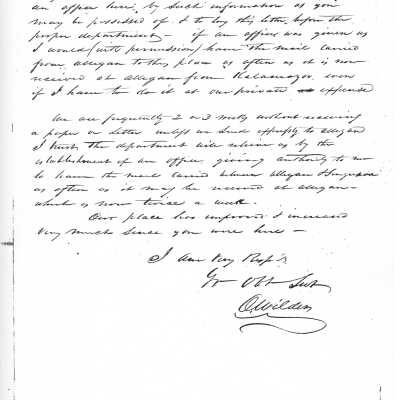 an office here, by such information as you
may be possessed of & to lay this letter before the
proper department – if an office was given us
I would (with permission) have the mail carried
from allegan to this place as often as it is now
received at allegan from Kalamazoo even
if I have to do it at our private expense
We are frequently 2 or 3 weeks without receiving
a paper or letter unless we send expressly to allegan
I trust the department will relieve us by the
establishment of an office, giving authority to me
to have the mail carried between allegan & Singapore
as often as it may be received at allegan –
which is now twice a week.
Our place has improved & increased
very much since you were here –
I am Very Resp'y
Yr Obt Svt
O Wilder